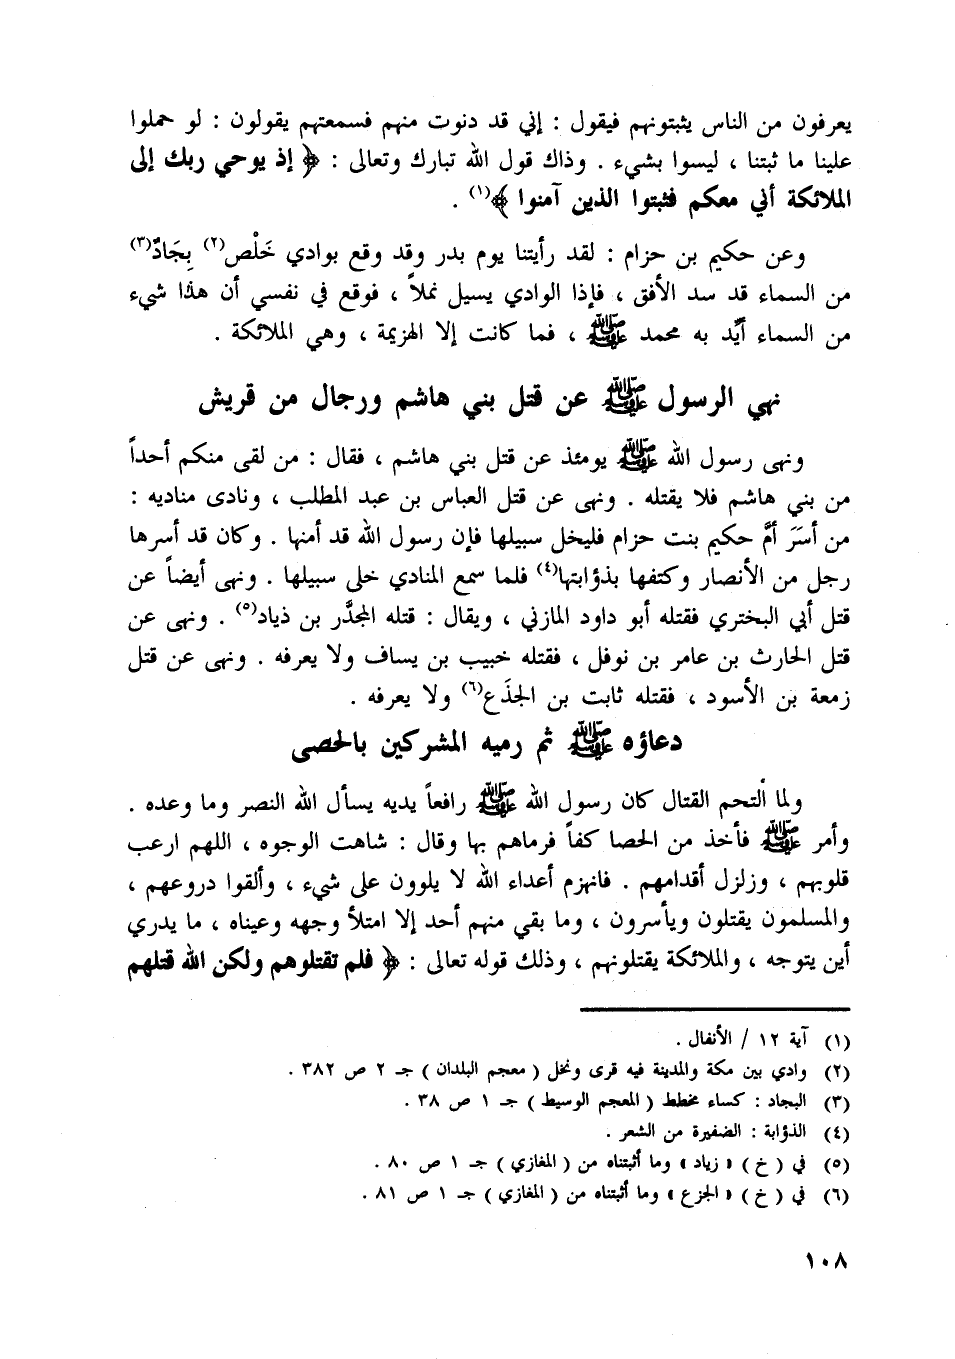 يعرفون من الناس يثبتونهم فيقول : إني قد دنوت منهم فسمعتهم يقولون : لو حملوا
علينا ما ثبتنا ، ليسوا بشيء . وذاك قول الله تبارك وتعالى : ﴿ إذ يوحي ربك إلى
الملائكة أني معكم فثبتوا الذين آمنوا ﴾(١) .
وعن حكيم بن حزام : لقد رأيتنا يوم بدر وقد وقع بوادي خَلْص(٢) بِجَادٌ(٣)
من السماء قد سد الأفق ، فإذا الوادي يسيل نملاً ، فوقع في نفسي أن هذا شيء
من السماء أيِّد به محمد ﷺ ، فما كانت إلا الهزيمة ، وهي الملائكة .
نهي الرسول ﷺ عن قتل بني هاشم ورجال من قريش
ونهى رسول الله ﷺ يومئذ عن قتل بني هاشم ، فقال : من لقى منكم أحداً
من بني هاشم فلا يقتله . ونهى عن قتل العباس بن عبد المطلب ، ونادى مناديه :
من أسَرَ أمَّ حكيم بنت حزام فليخل سبيلها فإن رسول الله قد أمنها . وكان قد أسرها
رجل من الأنصار وكتفها بذؤابتها(٤) فلما سمع المنادي خلى سبيلها . ونهى أيضاً عن
قتل أبي البختري فقتله أبو داود المازني ، ويقال : قتله المجذَّر بن ذياد(٥) . ونهى عن
قتل الحارث بن عامر بن نوفل ، فقتله خبيب بن يساف ولا يعرفه . ونهى عن قتل
زمعة بن الأسود ، فقتله ثابت بن الجذَع(٦) ولا يعرفه .
دعاؤه ﷺ ثم رميه المشركين بالحصى
ولما التحم القتال كان رسول الله ﷺ رافعاً يديه يسأل الله النصر وما وعده .
وأمر ﷺ فأخذ من الحصا كفاً فرماهم بها وقال : شاهت الوجوه ، اللهم ارعب
قلوبهم ، وزلزل أقدامهم . فانهزم أعداء الله لا يلوون على شيء ، وألقوا دروعهم ،
والمسلمون يقتلون ويأسرون ، وما بقي منهم أحد إلا امتلأ وجهه وعيناه ، ما يدري
أين يتوجه ، والملائكة يقتلونهم ، وذلك قوله تعالى : ﴿ فلم تقتلوهم ولكن الله قتلهم
(١) آية ١٢ / الأنفال .
(٢) وادي بين مكة والمدينة فيه قرى ونخل ( معجم البلدان ) جـ ٢ ص ٣٨٢ .
(٣) البجاد : كساء مخطط ( المعجم الوسيط ) جـ ١ ص ٣٨ .
(٤) الذؤابة : الضفيرة من الشعر .
(٥) في ( خ ) « زياد » وما أثبتناه من ( المغازي ) جـ ١ ص ٨٠ .
(٦) في ( خ ) « الجزع » وما أثبتناه من ( المغازي ) جـ ١ ص ٨١ .
١٠٨